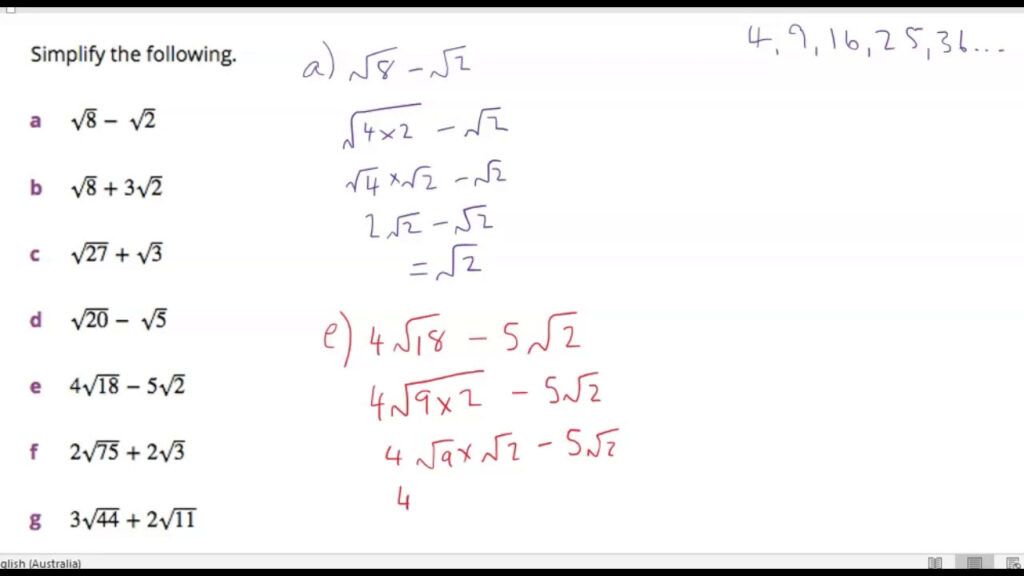 Simplify the following.
a √8 − √2
b √8 + 3√2
c √27 + √3
d √20 − √5
e 4√18 − 5√2
f 2√75 + 2√3
g 3√44 + 2√11
4, 9, 16, 25, 36...
a) √8 − √2
√4×2 − √2
√4 × √2 − √2
2√2 − √2
= √2
e) 4√18 − 5√2
4√9×2 − 5√2
4 √9 × √2 − 5√2
4
glish (Australia)